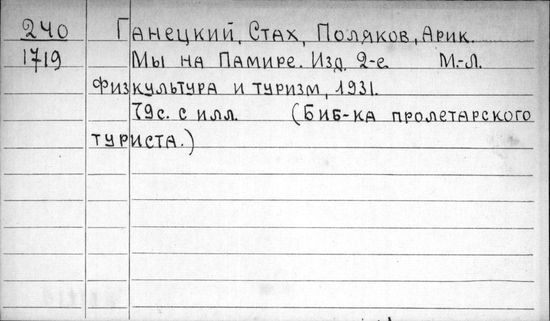 240 Ганецкий, Стах, Поляков, Арик.
1719 Мы на Памире. Изд. 2-е. М.-Л.
Физкультура и туризм, 1931.
79с. с илл. (Биб-ка пролетарского
туриста.)